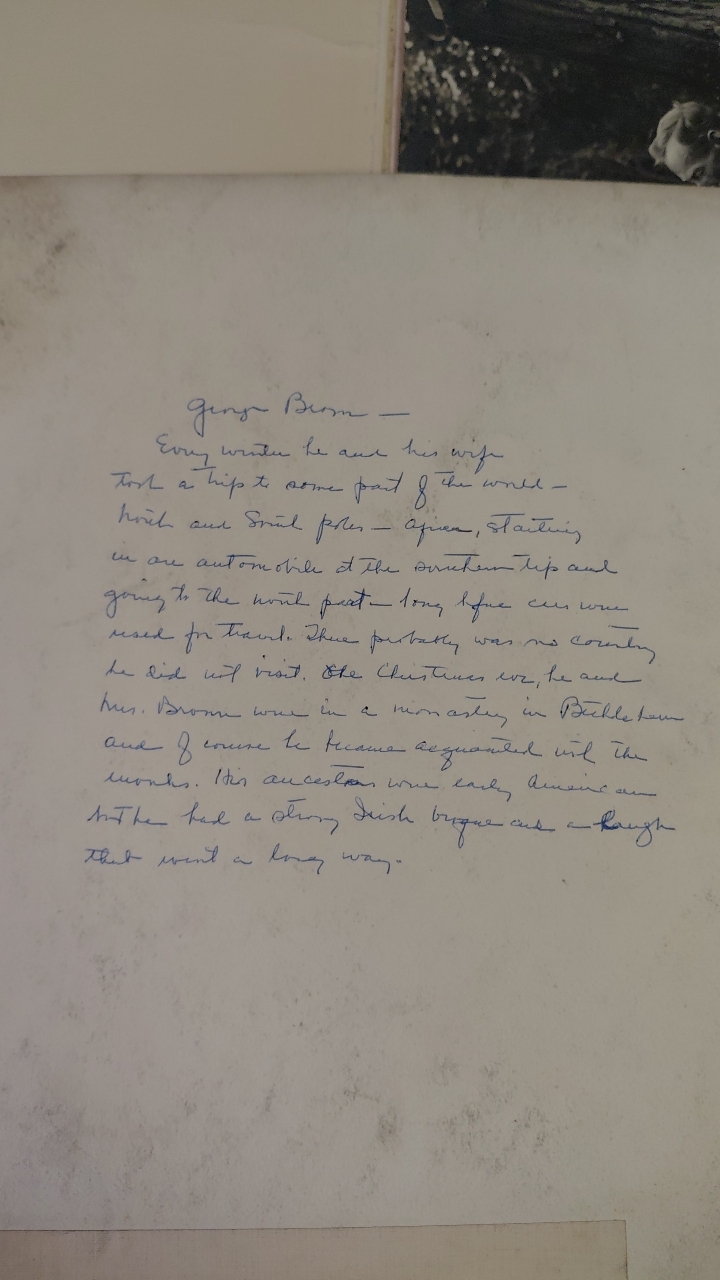 George Brown —
Every winter he and his wife
took a trip to some part of the world —
North and South poles — Africa, starting
in an automobile at the southern tip and
going to the north part — long before cars were
used for travel. There probably was no country
he did not visit. One Christmas eve, he and
Mrs. Brown were in a monastery in Bethlehem
and of course he became acquainted with the
monks. His ancestors were early American
but he had a strong Irish brogue and a laugh
that went a long way.